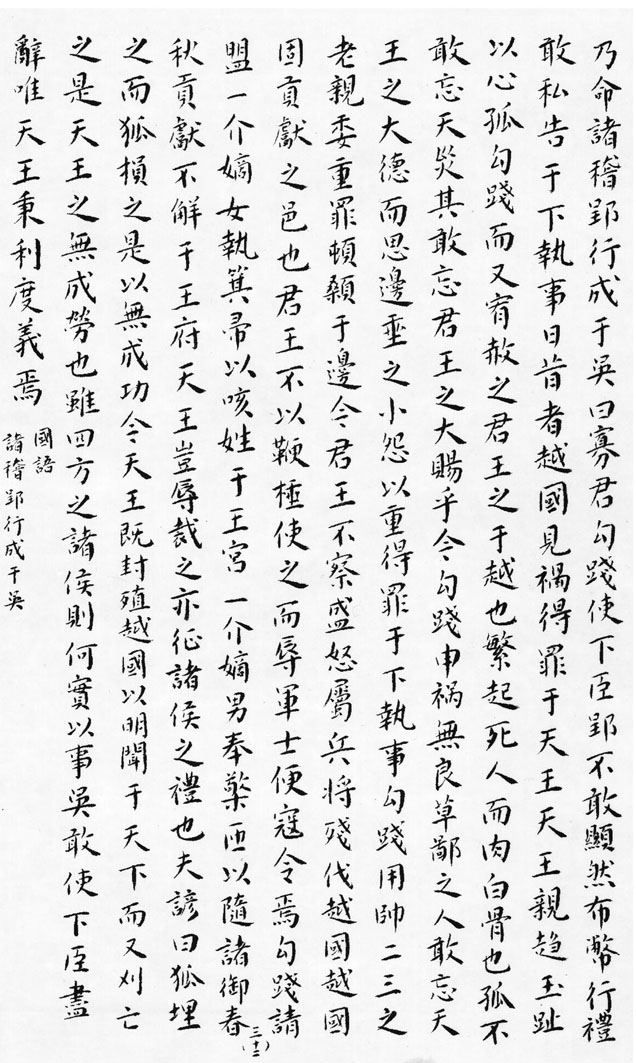 乃命諸稽郢行成于吳曰寡君勾踐使下臣郢不敢顯然布幣行禮
敢私告于下執事曰昔者越國見禍得罪于天王天王親趨玉趾
以心孤勾踐而又宥赦之君王之于越也繄起死人而肉白骨也孤不
敢忘天災其敢忘君王之大賜乎今勾踐申禍無良草鄙之人敢忘天
王之大德而思邊垂之小怨以重得罪于下執事勾踐用帥二三之
老親委重罪頓顙于邊今君王不察盛怒屬兵將殘伐越國越國
固貢獻之邑也君王不以鞭棰使之而辱軍士使寇令焉勾踐請
盟一介嫡女執箕帚以咳姓于王宮一介嫡男奉槃匜以隨諸御春
秋貢獻不解于王府天王豈辱裁之亦征諸侯之禮也夫諺曰狐埋
之而狐搰之是以無成功今天王既封殖越國以明聞于天下而又刈亡
之是天王之無成勞也雖四方之諸侯則何實以事吳敢使下臣盡
辭唯天王秉利度義焉
國語
諸稽郢行成于吳